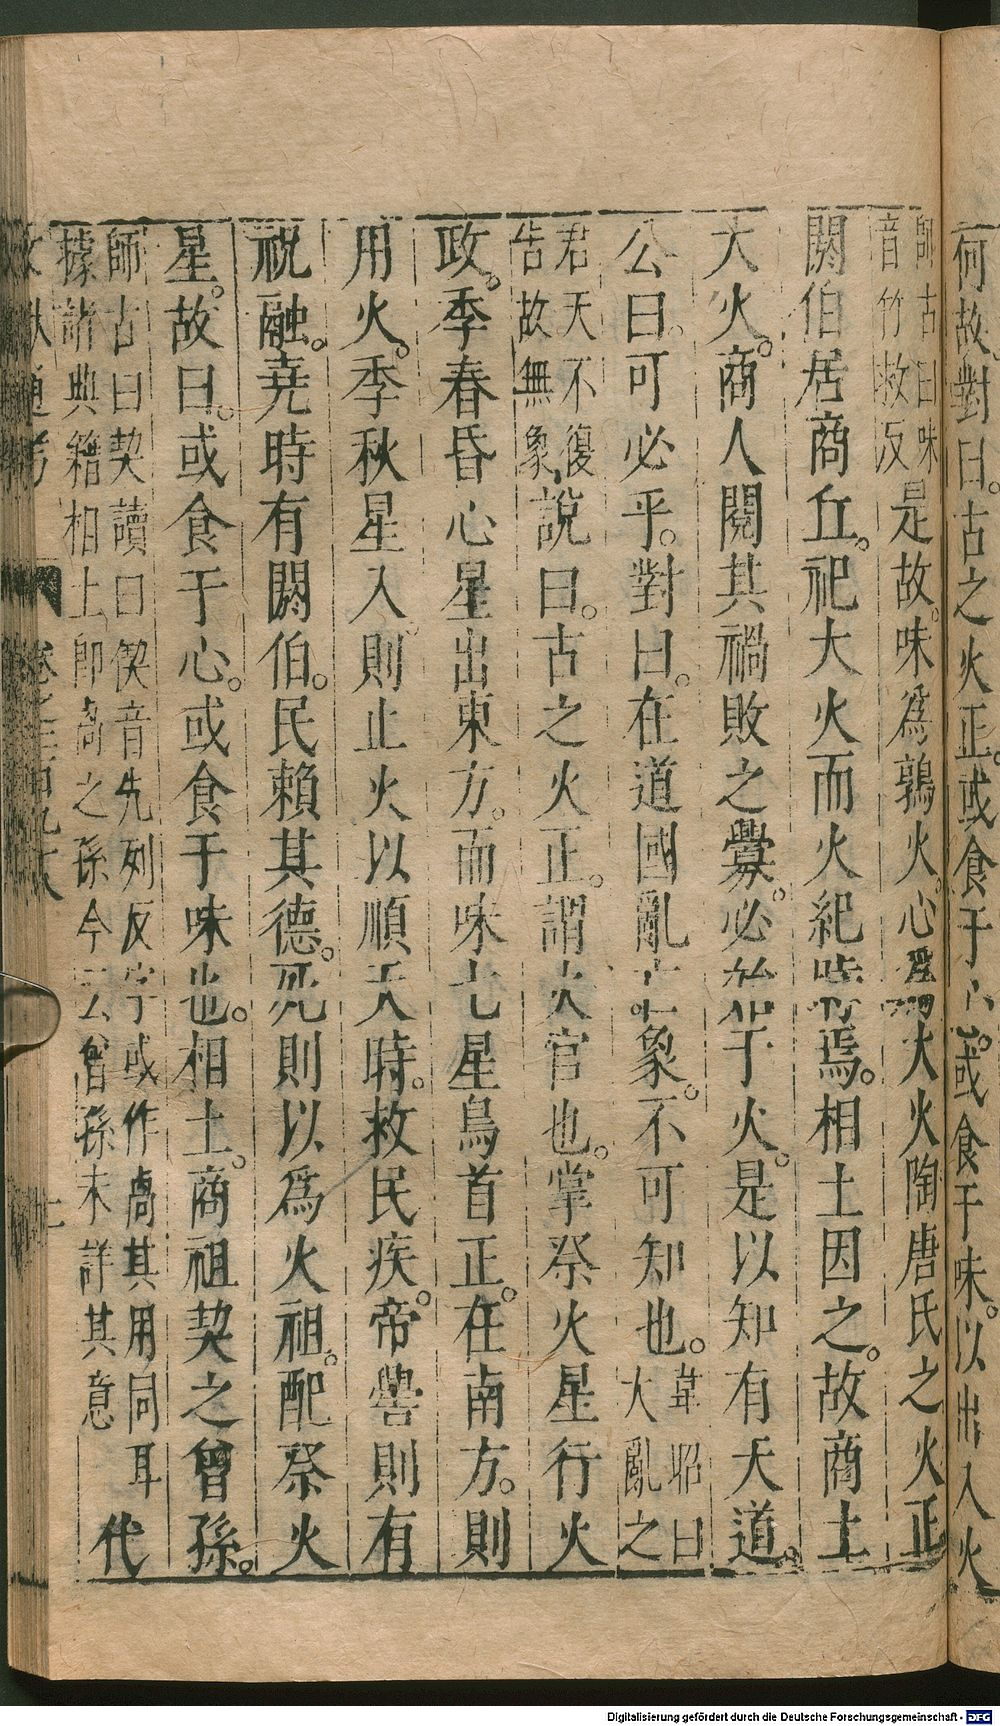 何故。對曰。古之火正。或食于心。或食于咮。以出入火
師古曰咮音竹救反是故。咮爲鶉火。心爲大火陶唐氏之火正
閼伯居商丘。祀大火而火紀時焉。相土因之。故商主
大火。商人閱其禍敗之釁。必始于火。是以知有天道。
公曰。可必乎。對曰。在道國亂亡象。不可知也。韋昭曰大亂之
君天不復告故無象說曰。古之火正。謂火官也。掌祭火星行火
政。季春昏心星出東方。而咮七星鳥首正。在南方。則
用火。季秋星入則止火以順天時。救民疾。帝嚳則有
祝融。堯時有閼伯。民賴其德。死則以爲火祖。配祭火
星。故曰。或食于心。或食于咮也。相土。商祖契之曾孫。
師古曰契讀曰偰音先列反字或作卨其用同耳據諸典籍相土卽卨之孫今云曾孫未詳其意代
Digitalisierung gefördert durch die Deutsche Forschungsgemeinschaft - DFG